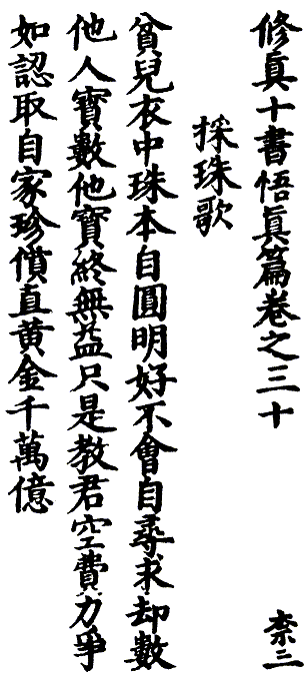 修真十書悟真篇卷之三十
柰三
採珠歌
貧兒衣中珠本自圓明好不會自尋求却數
他人寶數他寶終無益只是教君空費力爭
如認取自家珍價直黄金千萬億